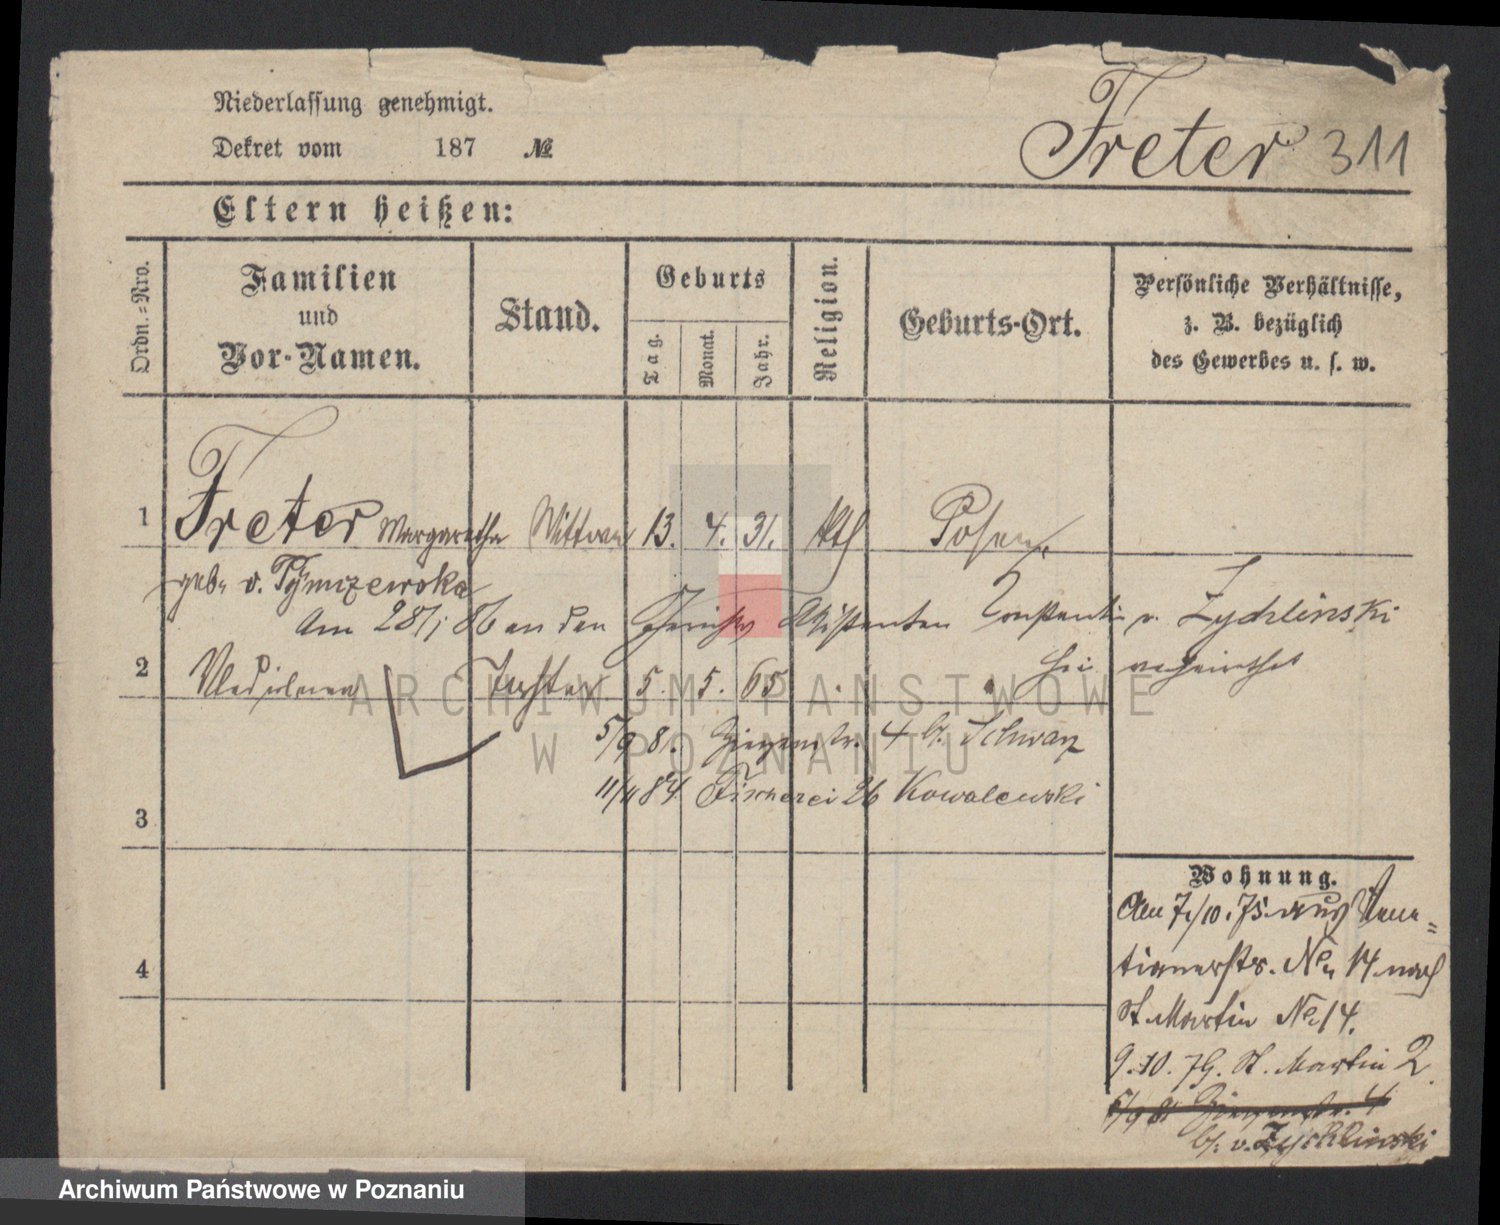 Niederlassung genehmigt.
Freter 311
Dekret vom 187 №
Eltern heißen:
Ordn.-Nro.
Familien
und
Vor-Namen.
Stand.
Geburts
Tag.
Monat.
Jahr.
Religion.
Geburts-Ort.
Persönliche Verhältnisse,
z. B. bezüglich
des Gewerbes u. s. w.
1 Freter Margaretha Wittwe 13. 4. 31. kth Posen
geb. v.
Am 28/1 86 an den Gerichts Assistenten Constantin v. Zychlinski
hier verheirathet
2 Tochter 5. 5. 65
5/9 81. Ziegenstr. 4 b. Schwarz
11/4 84 Fischerei 26 Kowalewski
3
4
Wohnung.
Am 7/10. 75 aus
No 14 nach
St. Martin No 14.
9. 10. 79. St. Martin 2.
5/9 81 Ziegenstr. 4
b. v. Zychlinski
ARCHIWUM PAŃSTWOWE
W POZNANIU
Archiwum Państwowe w Poznaniu